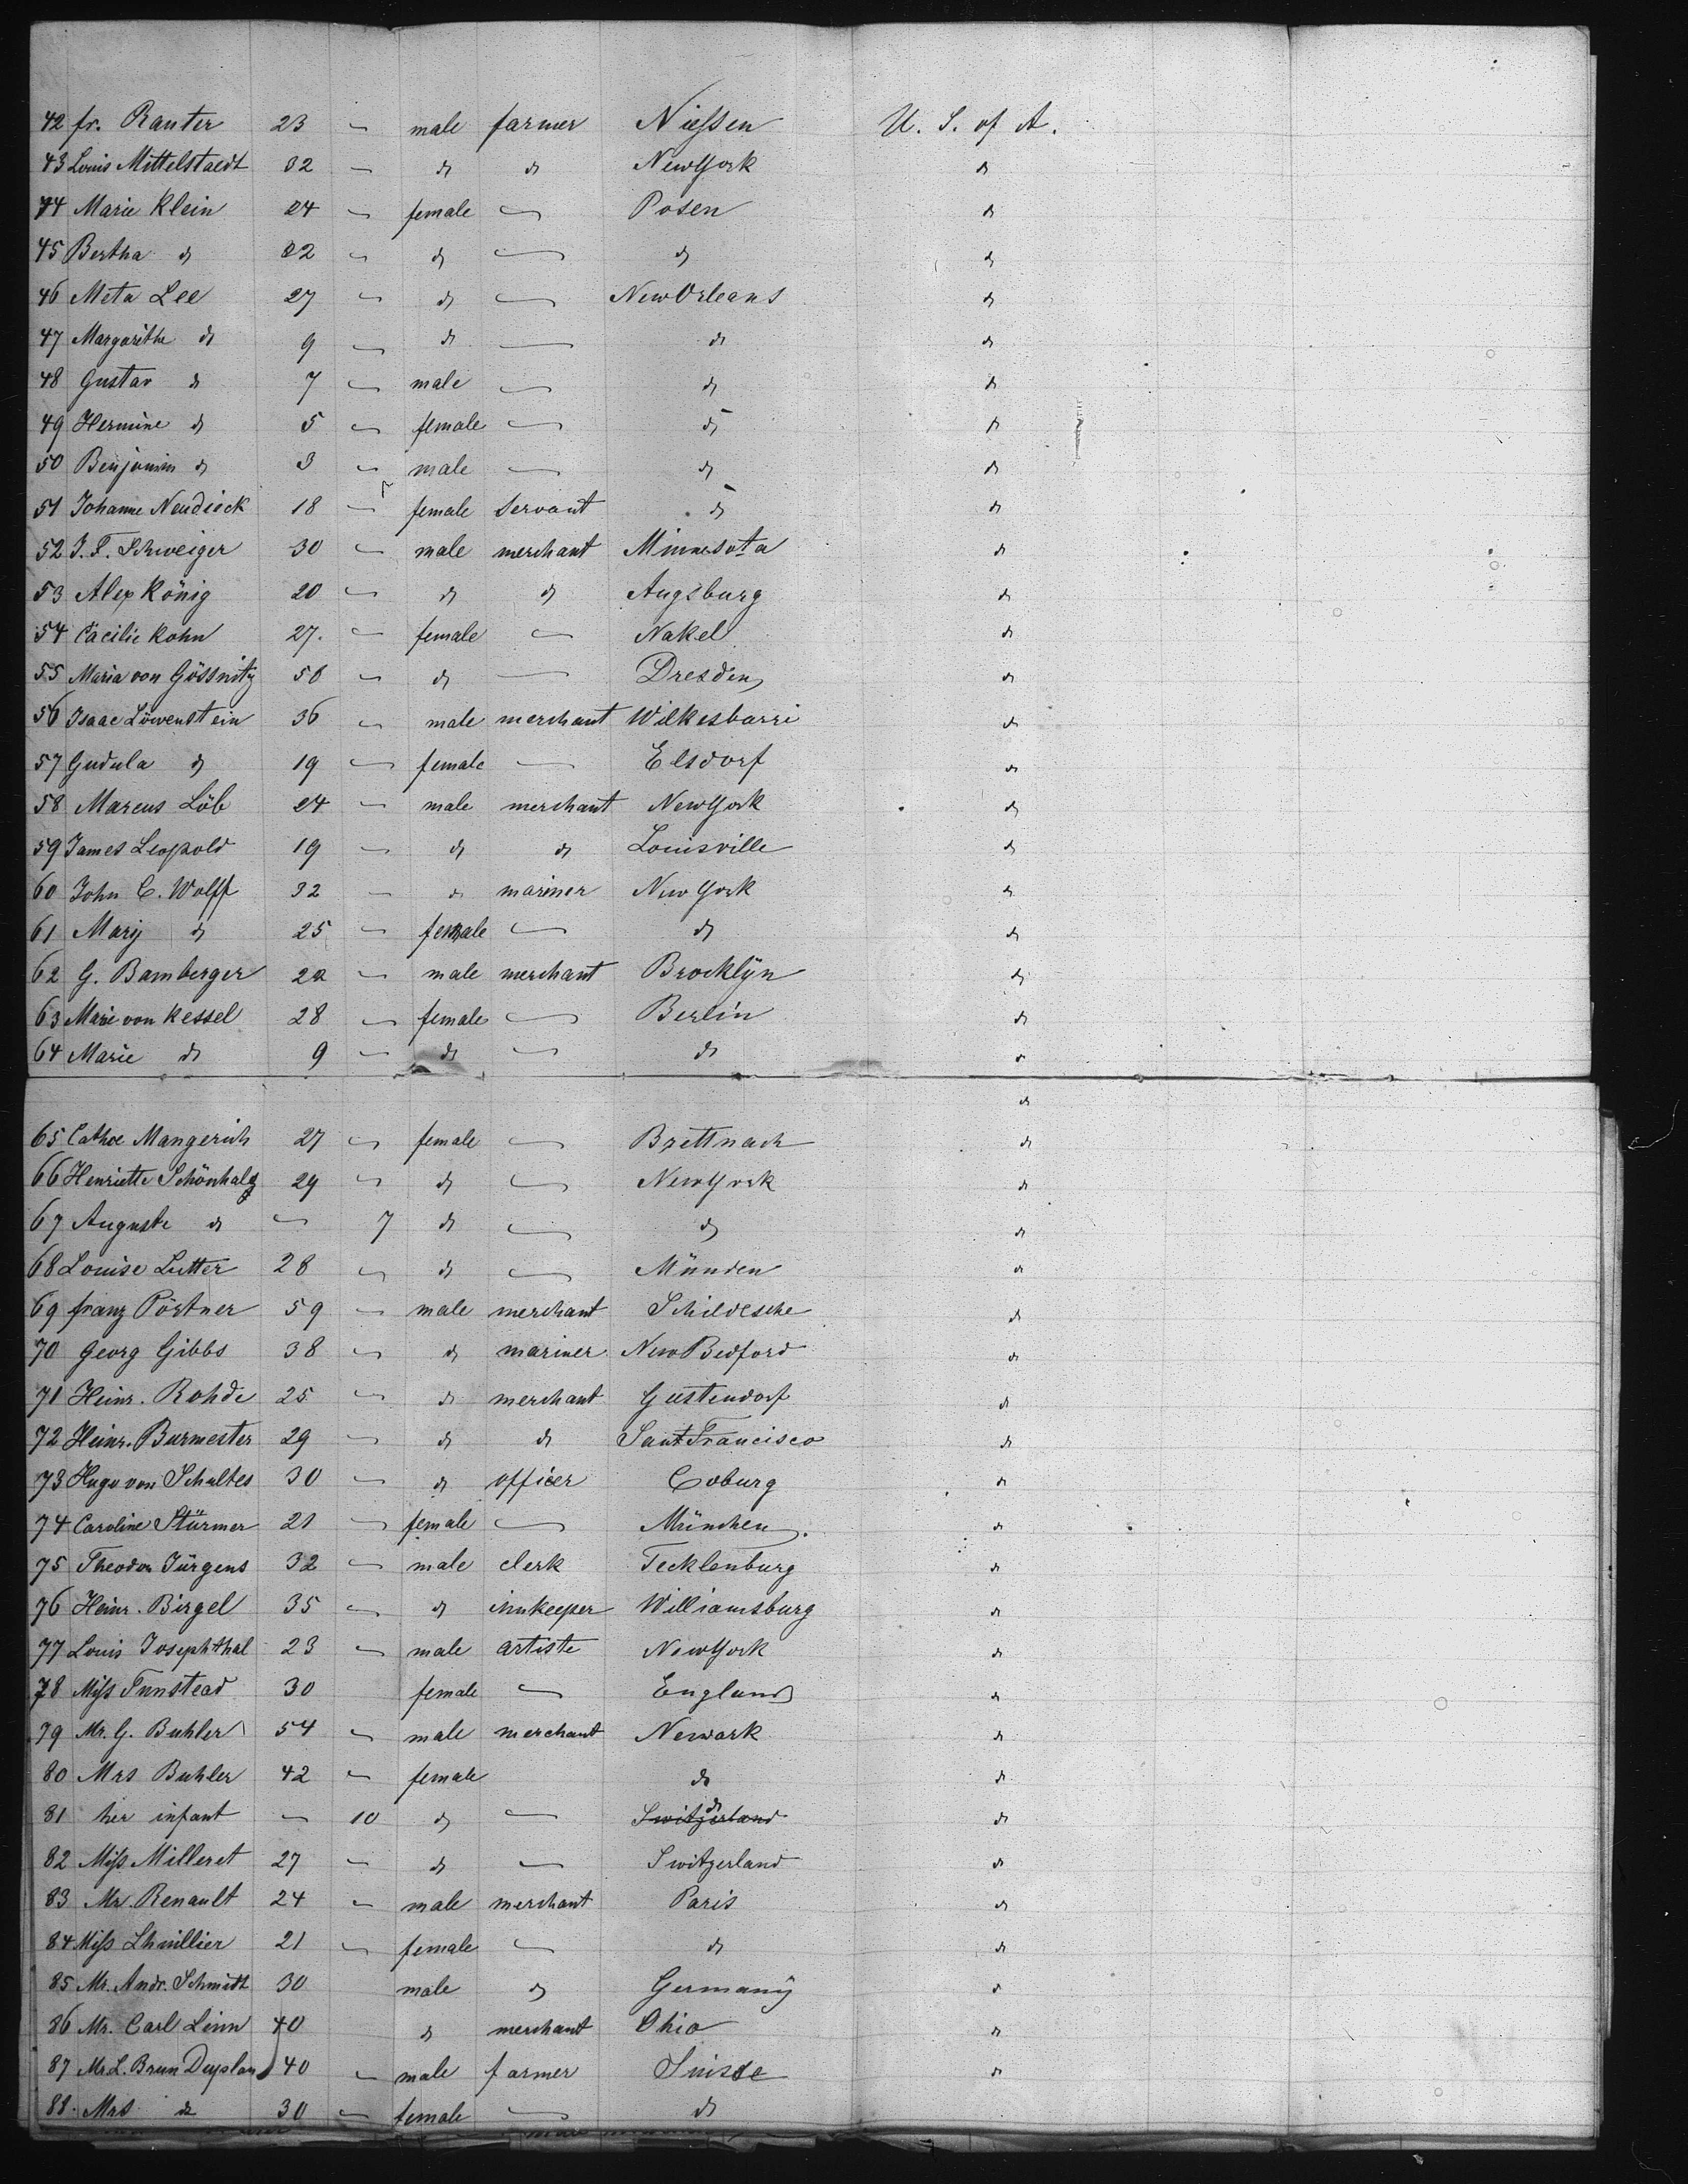 42 fr. Ranter 23 — male farmer Niessen U. S. of A.
43 Louis Mittelstaedt 32 — do do NewYork do
44 Marie Klein 24 — female — Posen do
45 Bertha do 22 — do — do do
46 Meta Lee 27 — do — NewOrleans do
47 Margarithe do 9 — do — do do
48 Gustav do 7 — male — do do
49 Hermine do 5 — female — do do
50 Benjamin do 3 — male — do do
51 Johanne Neudieck 18 — female Servant do do
52 J. F. Schweiger 30 — male merchant Minnesota do
53 Alex König 20 — do do Augsburg do
54 Cäcilie Kohn 27. — female — Nakel do
55 Maria von Gössnitz 56 — do — Dresden do
56 Isaac Löwenstein 36 — male merchant Wilkesbarri do
57 Gudula do 19 — female — Elsdorf do
58 Marcus Löb 24 — male merchant NewYork do
59 James Leopold 19 — do do Louisville do
60 John C. Wolff 32 — do mariner New York do
61 Mary do 25 — female — do do
62 G. Bamberger 22 — male merchant Brocklyn do
63 Marie von Kessel 28 — female — Berlin do
64 Marie do 9 — do — do do
do
65 Cathe Mangerich 27 — female — Brettnach do
66 Henriette Schönhalz 29 — do — NewYork do
67 Auguste do — 7 do — do do
68 Louise Lutter 28 — do — Münden do
69 franz Pörtner 59 — male merchant Schildesche do
70 Georg Gibbs 38 — do mariner New Bedford do
71 Heinr. Rohde 25 — do merchant Geestendorf do
72 Heinr. Burmester 29 — do do Sant Francisco do
73 Hugo von Schultes 30 — do officer Coburg do
74 Caroline Stürmer 21 — female — München. do
75 Theodor Jürgens 32 — male clerk Tecklenburg do
76 Heinr. Birgel 35 — do innkeeper Williamsburg do
77 Louis Josephthal 23 — male artiste NewYork do
78 Miss Tunstead 30 female — England do
79 Mr. G. Buhler 54 — male merchant Newark do
80 Mrs Buhler 42 — female do do
81 her infant — 10 do — Switzerland do do
82 Miss Milleret 27 — do — Switzerland do
83 Mr. Renault 24 — male merchant Paris do
84 Miss Lhuillier 21 — female — do do
85 Mr. Andr. Schmidt 30 male do Germany do
86 Mr. Carl Linn 40 do merchant Ohio do
87 Mr L. Brun Duplan 40 — male farmer Suisse do
88. Mrs do 30 — female — do